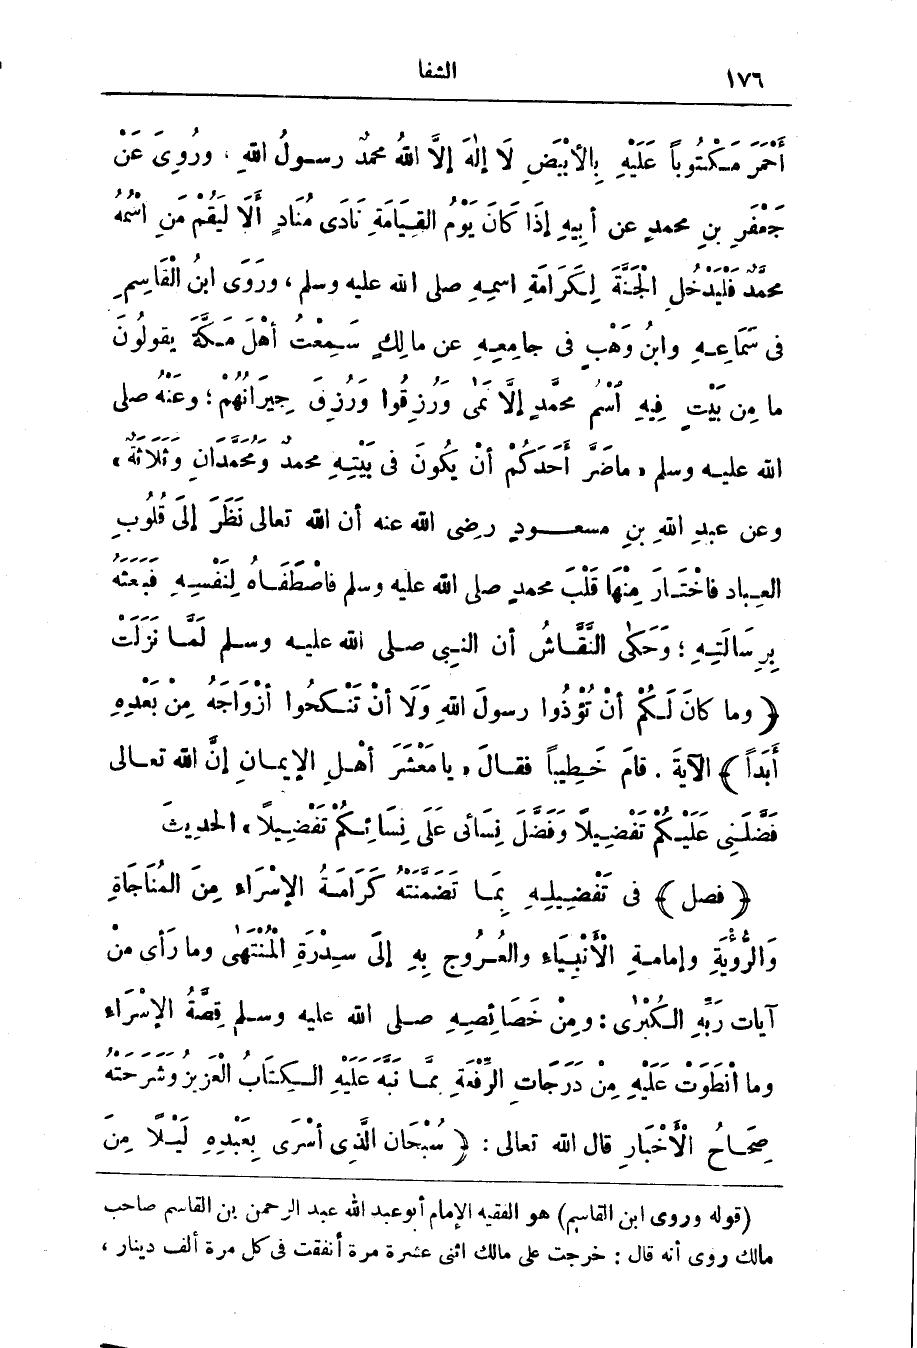 ١٧٦
الشفا
أَحْمَرَ مَكْتُوباً عَلَيْهِ بِالأَبْيَضِ لَا إِلٰهَ إِلَّا اللهُ مُحمَّدٌ رسولُ اللهِ ، ورُوِىَ عَنْ
جَعْفَرِ بنِ محمدٍ عن أَبِيهِ إِذَا كَانَ يَوْمُ القِيَامَةِ نَادَى مُنَادٍ أَلَا لِيَقُمْ مَنِ اسْمُهُ
محمَّدٌ فَلْيَدْخُلِ الْجَنَّةَ لِكَرَامَةِ اسمِهِ صلى الله عليه وسلم ، ورَوَى ابنُ الْقَاسِمِ
فى سَمَاعِهِ وابنُ وَهْبٍ فى جامِعِهِ عن مالِكٍ سَمِعْتُ أَهْلَ مَكَّةَ يقولُونَ
ما مِن بَيْتٍ فِيهِ اَسْمُ محمَّدٍ إِلَّا نَمٰى وَرُزِقُوا وَرُزِقَ جِيرَانُهُمْ ؛ وعَنْهُ صلى
الله عليه وسلم « ماضَرَّ أَحَدَكُمْ أَنْ يَكُونَ فى بَيْتِهِ محمدٌ ومُحَمَّدَانِ وَثَلَاثَةٌ »
وعن عبدِ اللهِ بنِ مسعودٍ رضى الله عنه أن الله تعالى نَظَرَ إِلَى قُلُوبِ
العِباد فاخْتَارَ مِنْهَا قَلْبَ محمدٍ صلى الله عليه وسلم فاصْطَفَاهُ لِنَفْسِهِ فَبَعَثَهُ
بِرِسَالَتِهِ ؛ وَحَكٰى النَّقَّاشُ أن النبى صلى الله عليه وسلم لَمَّا نَزَلَتْ
﴿ وما كَانَ لَكُمْ أَنْ تُؤْذُوا رسولَ اللهِ وَلَا أَنْ تَنْكِحُوا أَزْوَاجَهُ مِنْ بَعْدِهِ
أَبَداً ﴾ الآيَةَ . قامَ خَطِيباً فقالَ « يا مَعْشَرَ أَهْلِ الإِيمانِ إِنَّ الله تعالى
فَضَّلَنِى عَلَيْكُمْ تَفْضِيلًا وَفَضَّلَ نِسَائى عَلَى نِسَائِكُمْ تَفْضِيلًا » الحديثَ
﴿ فصل ﴾ فى تَفْضِيلِهِ بِمَا تَضَمَّنَتْهُ كَرَامَةُ الإِسْرَاءِ مِنَ المُنَاجَاةِ
وَالرُّؤْيَةِ وإمامةِ الْأَنْبِيَاءِ والعُرُوجِ بِهِ إِلَى سِدْرَةِ الْمُنْتَهٰى وما رَأَى مِنْ
آياتِ رَبِّهِ الكُبْرٰى : ومِنْ خَصَائِصِهِ صلى الله عليه وسلم قِصَّةُ الإِسْرَاءِ
وما انْطَوَتْ عَلَيْهِ مِنْ دَرَجَاتِ الرِّفْعَةِ بِمَّا نَبَّهَ عَلَيْهِ الكِتَابُ العَزِيزُ وَشَرَحَتْهُ
صِحَاحُ الْأَخْبَارِ قال الله تعالى : ﴿ سُبْحَانَ الَّذِى أَسْرَى بِعَبْدِهِ لَيْلًا مِنَ
(قوله وروى ابن القاسم) هو الفقيه الإمام أبو عبد الله عبد الرحمن بن القاسم صاحب
مالك روى أنه قال : خرجت على مالك اثنى عشرة مرة أنفقت فى كل مرة ألف دينار ،